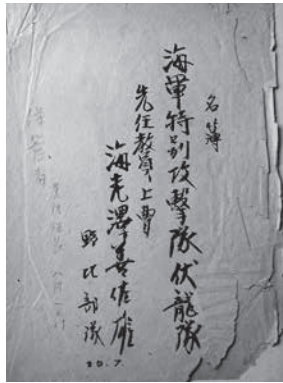 名簿
海軍特別攻撃隊伏龍隊
先任教員上曹
海老澤善佐雄
野比部隊
20.7.